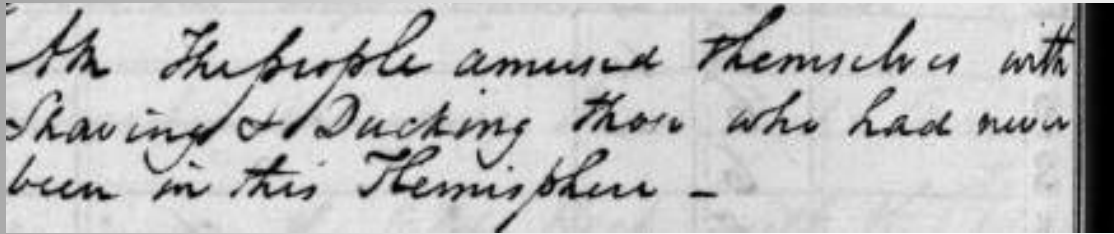 AM The people amused themselves with
Shaving & Ducking those who had never
been in this Hemisphere -